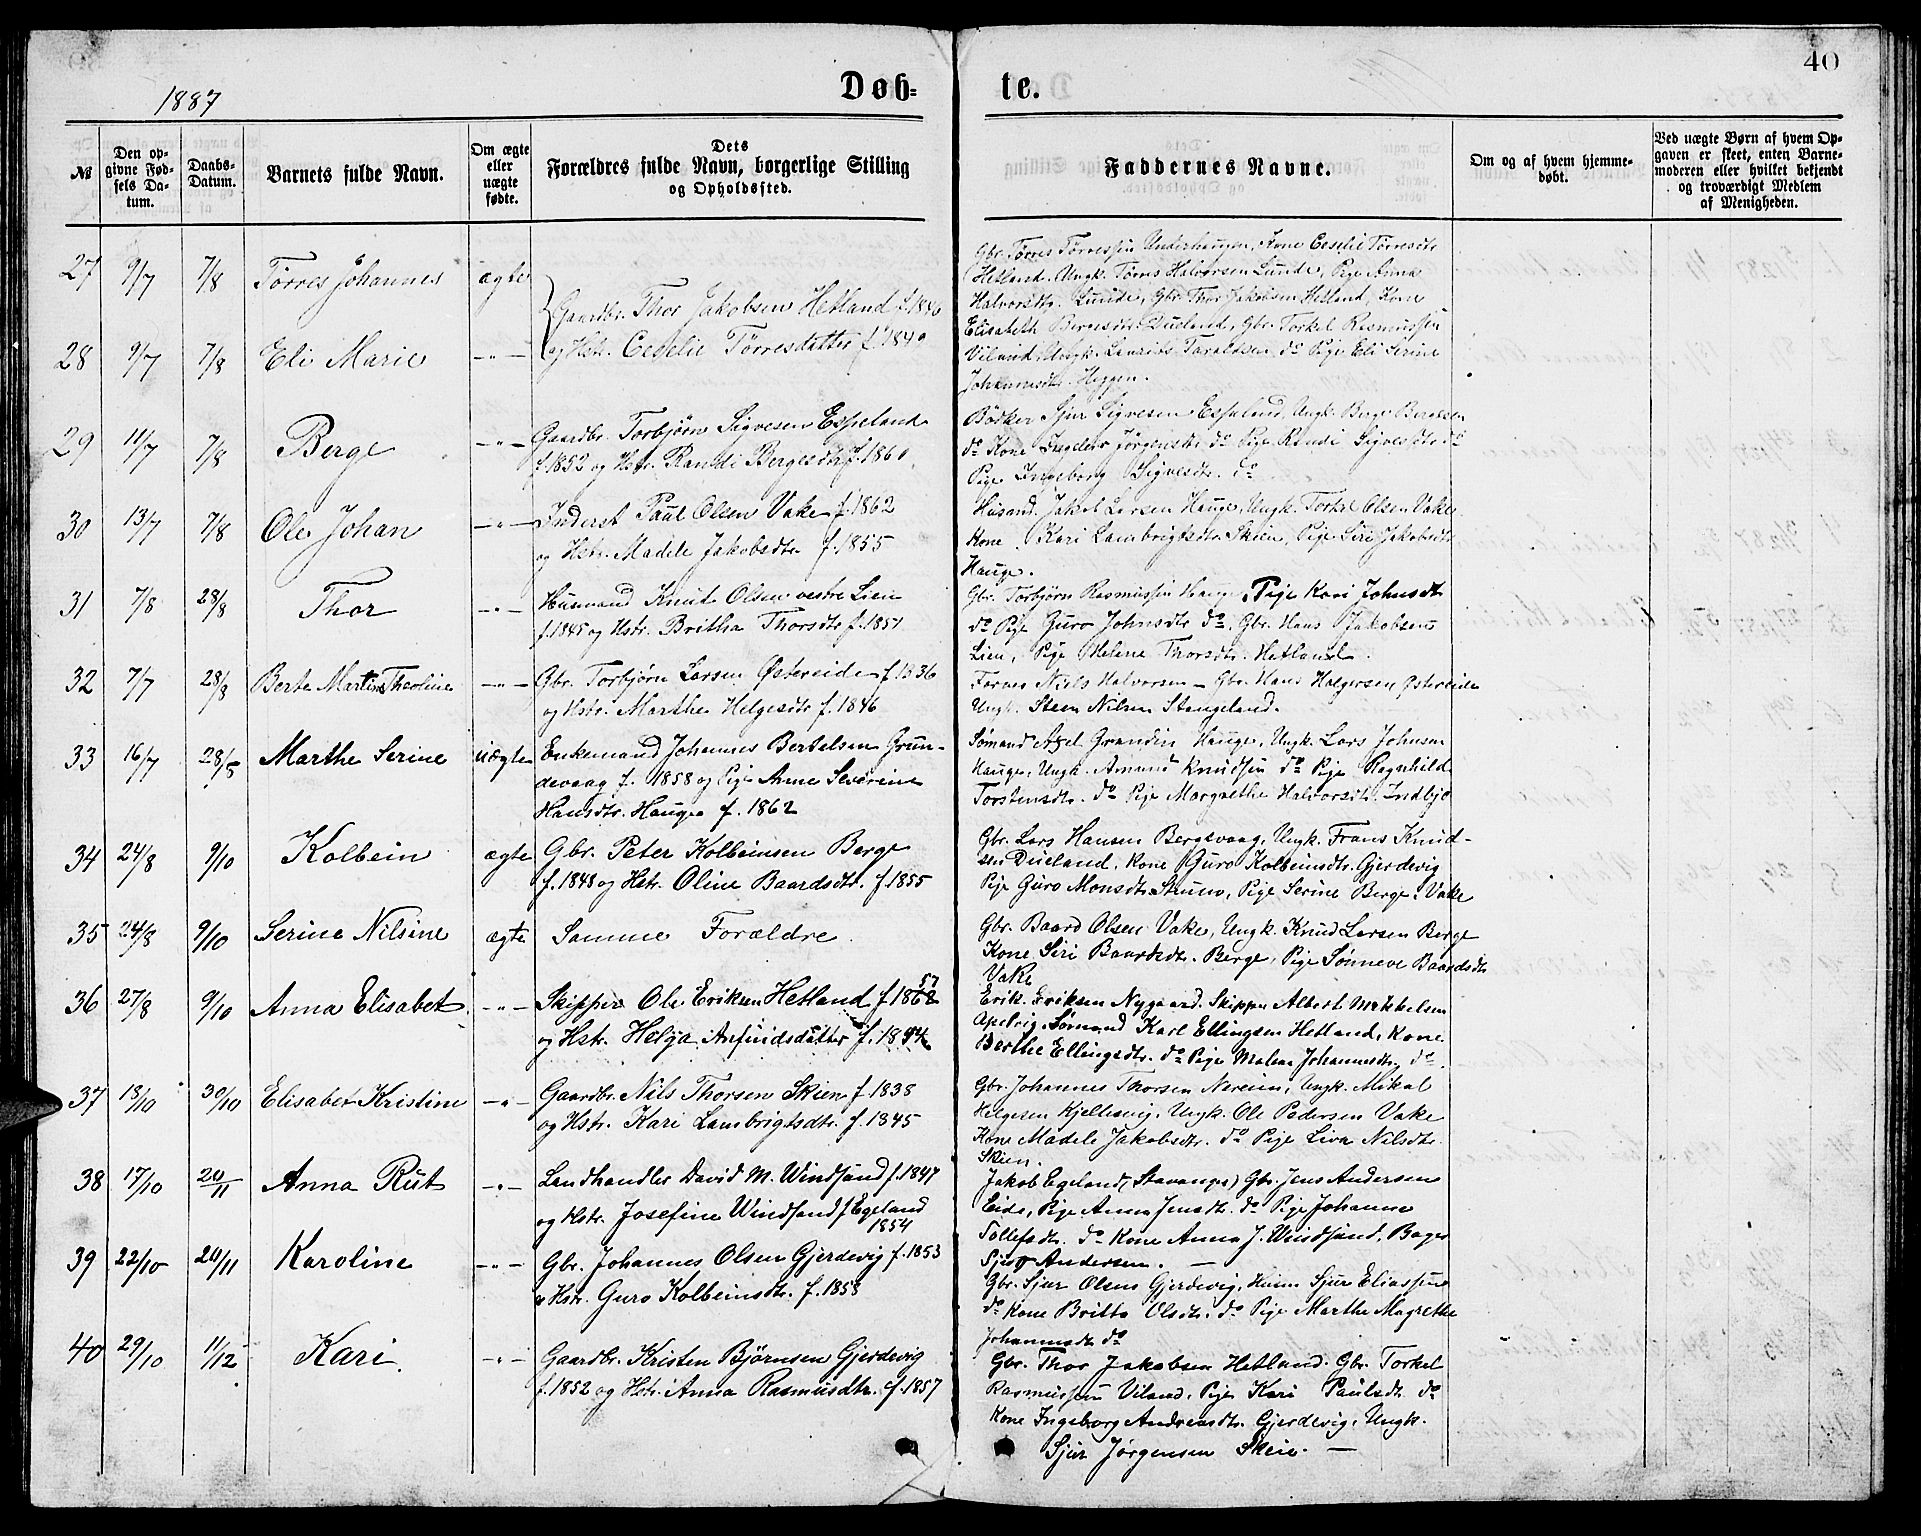 40
1887
Døb-
te.
№
Den op-
givne Fød-
sels Da-
tum.
Daabs-
Datum.
Barnets fulde Navn.
Om ægte
eller
uægte
fødte.
Dets
Forældres fulde Navn, borgerlige Stilling
og Opholdssted.
Faddernes Navne.
Om og af hvem hjemme-
døbt.
Ved uægte Børn af hvem Op-
gaven er skeet, enten Barne-
moderen eller hvilket bekjendt
og troværdigt Medlem
af Menigheden.
27 9/7 7/8 Tørres Johannes ægte
28 9/7 7/8 Eli Marie -"-
Gaardbr. Thor Jakobsen Hetland f. 1846
og Hstr. Cecelie Tørresdatter f. 1840
Gbr. Tørres Tørressen Underhaugen, Kone Cecelie Tørresdtr
Hetland, Ungk. Tørres Halvorsen Lunde, Pige Anna
Halvorsdtr. Lunde, Gbr. Thor Jakobsen Hetland, Kone
Elisabeth Bergesdtr. Dueland, Gbr. Torkel Rasmussen
Viland, Ungk. Laurits Taraldsen do Pige Eli Serine
Johannesdtr. Heggen.
29 11/7 7/8 Berge -"-
Gaardbr. Torbjørn Sigvesen Espeland
f. 1852 og Hstr. Randi Bergesdtr f. 1860
Bødker Sjur Sigvesen Espeland, Ungk. Berge Bergesen
do Kone Ingeborg Jørgensdtr do Pige Randi Sigvesdtr do
Pige Ingeborg Sigvesdtr. do
30 13/7 7/8 Ole Johan -"-
Inderst Paul Olsen Vake f. 1862
og Hstr. Madele Jakobsdtr. f. 1855
Husmand. Jakob Larsen Hauge, Ungk. Torkel Olsen Vake
Kone Kari Lambrigtsdtr. Skien, Pige Siri Jakobsdtr
Hauge.
31 7/8 28/8 Thor -"-
Husmand Knut Olsen vestre Lien
f. 1845 og Hstr. Britha Thorsdtr f. 1851
Gbr. Torbjørn Rasmussen Hauge, Pige Kari Johnsdtr
do Pige Guro Johnsdtr do, Gbr. Hans Jakobsen
Lien, Pige Helene Thorsdtr. Hetland.
32 7/7 28/8 Berte Martine Theoline -"-
Gbr. Torbjørn Larsen Østereide f 1836
og Hstr. Marthe Helgesdtr f. 1846
Niels Halvorsen - Gbr. Hans Holgersen Østereide
Ungk. Steen Nilsen Stangeland.
33 16/7 28/8 Marthe Serine uægte
Enkemand Johannes Bertelsen Grun-
devaag f. 1858 og Pige Anne Severine
Hansdtr. Hauge f. 1862
Sømand Axel Grandin Hauge, Ungk. Lars Johnsen
Hauge, Ungk. Amund Knudsen do Pige Ragnhild
Torstensdtr. do Pige Margrethe Halvorsdtr. Indbjo
34 24/8 9/10 Kolbein ægte
Gbr. Peter Kolbeinsen Berge
f. 1848 og Hstr. Oline Baardsdtr. f. 1855
Gbr. Lars Hansen Bergsvaag, Ungk. Frans Knud-
sen Dueland, Kone Guro Kolbeinsdtr. Gjerdevig
Pige Guro Monsdtr. Stuno, Pige Serine Berge. Vake
35 24/8 9/10 Serine Nilsine ægte
Samme Forældre.
Gbr. Baard Olsen Vake, Ungk. Knud Larsen Berge
Kone Siri Baardsdtr. Berge, Pige Sønneve Baardsdtr
Vake
36 27/8 9/10 Anna Elisabet -"-
Skipper Ole Eriksen Hetland f. 1862 57
og Hstr. Helga Anfindsdatter f. 1844
Erik Eriksen Nygaard. Skipper Albert Mekkelsen
Apelvig, Sømand Karl Ellingsen Hetland, Kone
Berthe Ellingsdtr. do Pige Malene Johannesdtr do.
37 18/10 30/10 Elisabet Kristine -"-
Gaardbr. Nils Thorsen Skien f. 1838
og Hstr. Kari Lambrigtsdtr. f. 1845
Gbr. Johannes Thorsen Nereim, Ungk. Mikal
Helgesen Kjellesvig, Ungk. Ole Pedersen Vake
Kone Madele Jakobsdtr. do Pige Liva Nilsdtr.
Skien.
38 17/10 20/11 Anna Rut -"-
Landhandler David M. Windsand f. 1847
og Hstr. Josefine Windsand f Egeland
1854
Jakob Egeland (Stavanger) Gbr. Jens Andersen
Eide, Pige Anna Jensdtr. do Pige Johanne
Tollefsdtr. do Kone Anna J. Windsand, Bager
Sjur Andersen. -
39 22/10 20/11 Karoline -"-
Gbr. Johannes Olsen Gjerdevig f. 1853
og Hstr. Guro Kolbeinsdtr. f. 1858
Gbr. Sjur Olsen Gjerdevig, Husm Sjur Eliassen
do Kone Britta Olsdtr. do Pige Marthe Magrethe
Johannesdtr do
40 29/10 11/12 Kari. -"-
Gaardbr. Kristen Bjørnsen Gjerdevig
f. 1852 og Hstr. Anna Rasmusdtr. f. 1857
Gbr. Thor Jakobsen Hetland. Gbr. Torkel
Rasmussen Viland, Pige Kari Paulsdtr. do
Kone Ingeborg Andreasdtr. Gjerdevig, Ungk.
Sjur Jørgensen Skeie. -